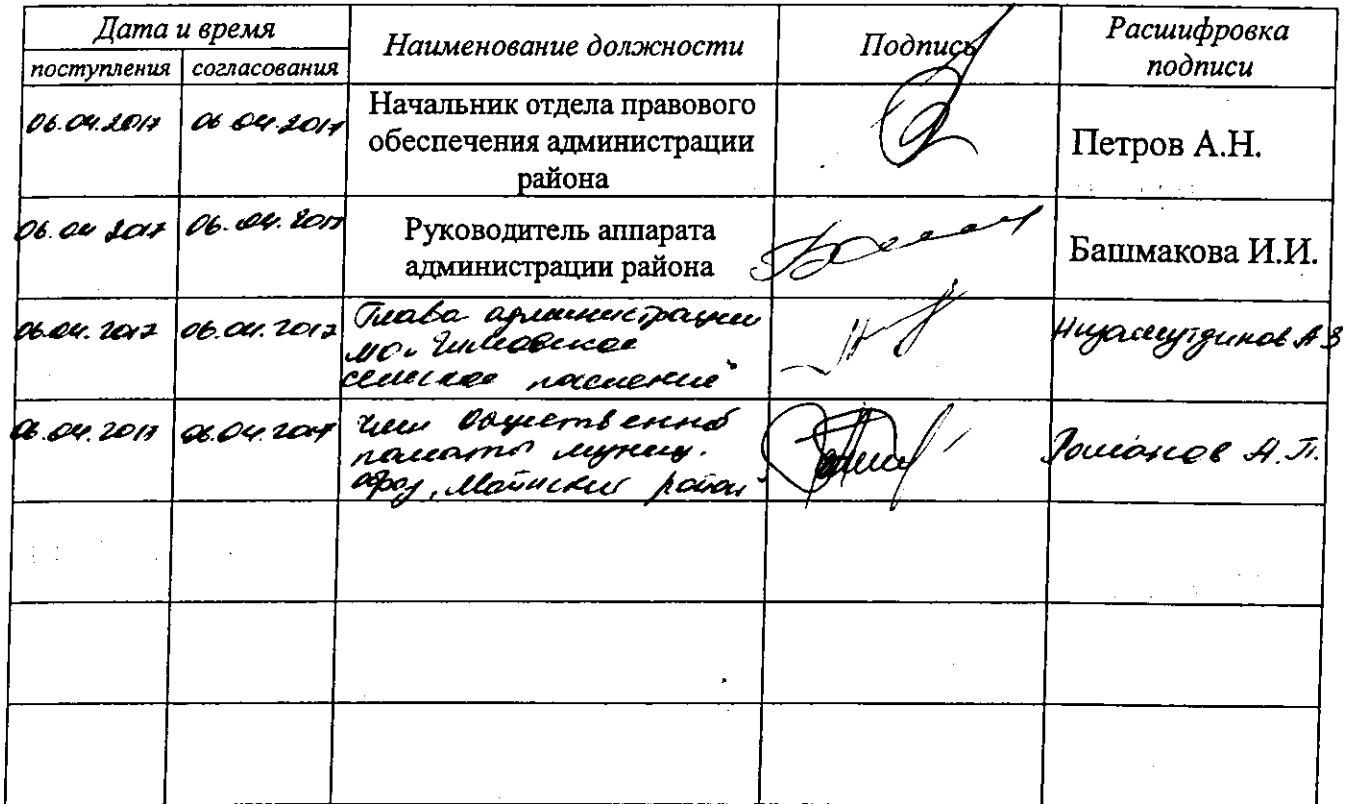 Дата и время
Наименование должности
Подпись
Расшифровка
подписи
поступления
согласования
06.04.2017
06.04.2017
Начальник отдела правового
обеспечения администрации
района
Петров А.Н.
06.04.2017
06.04.2017
Руководитель аппарата
администрации района
Башмакова И.И.
06.04.2017
06.04.2017
Глава администрации
МО
сельское поселение"
Низамутдинов А З
06.04.2017
06.04.2017
член Общественной
палаты муниц.
образ. „Майнский район"
Романов А.П.